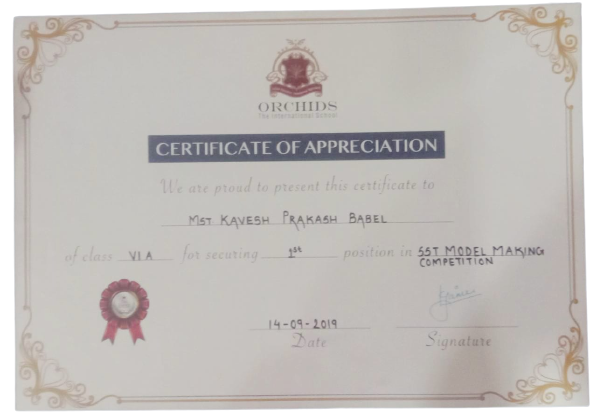 ORCHIDS
The International School
CERTIFICATE OF APPRECIATION
We are proud to present this certificate to
MST KAVESH PRAKASH BABEL
of class VI A for securing 1st position in SST MODEL MAKING
COMPETITION
14-09-2019
Date Signature